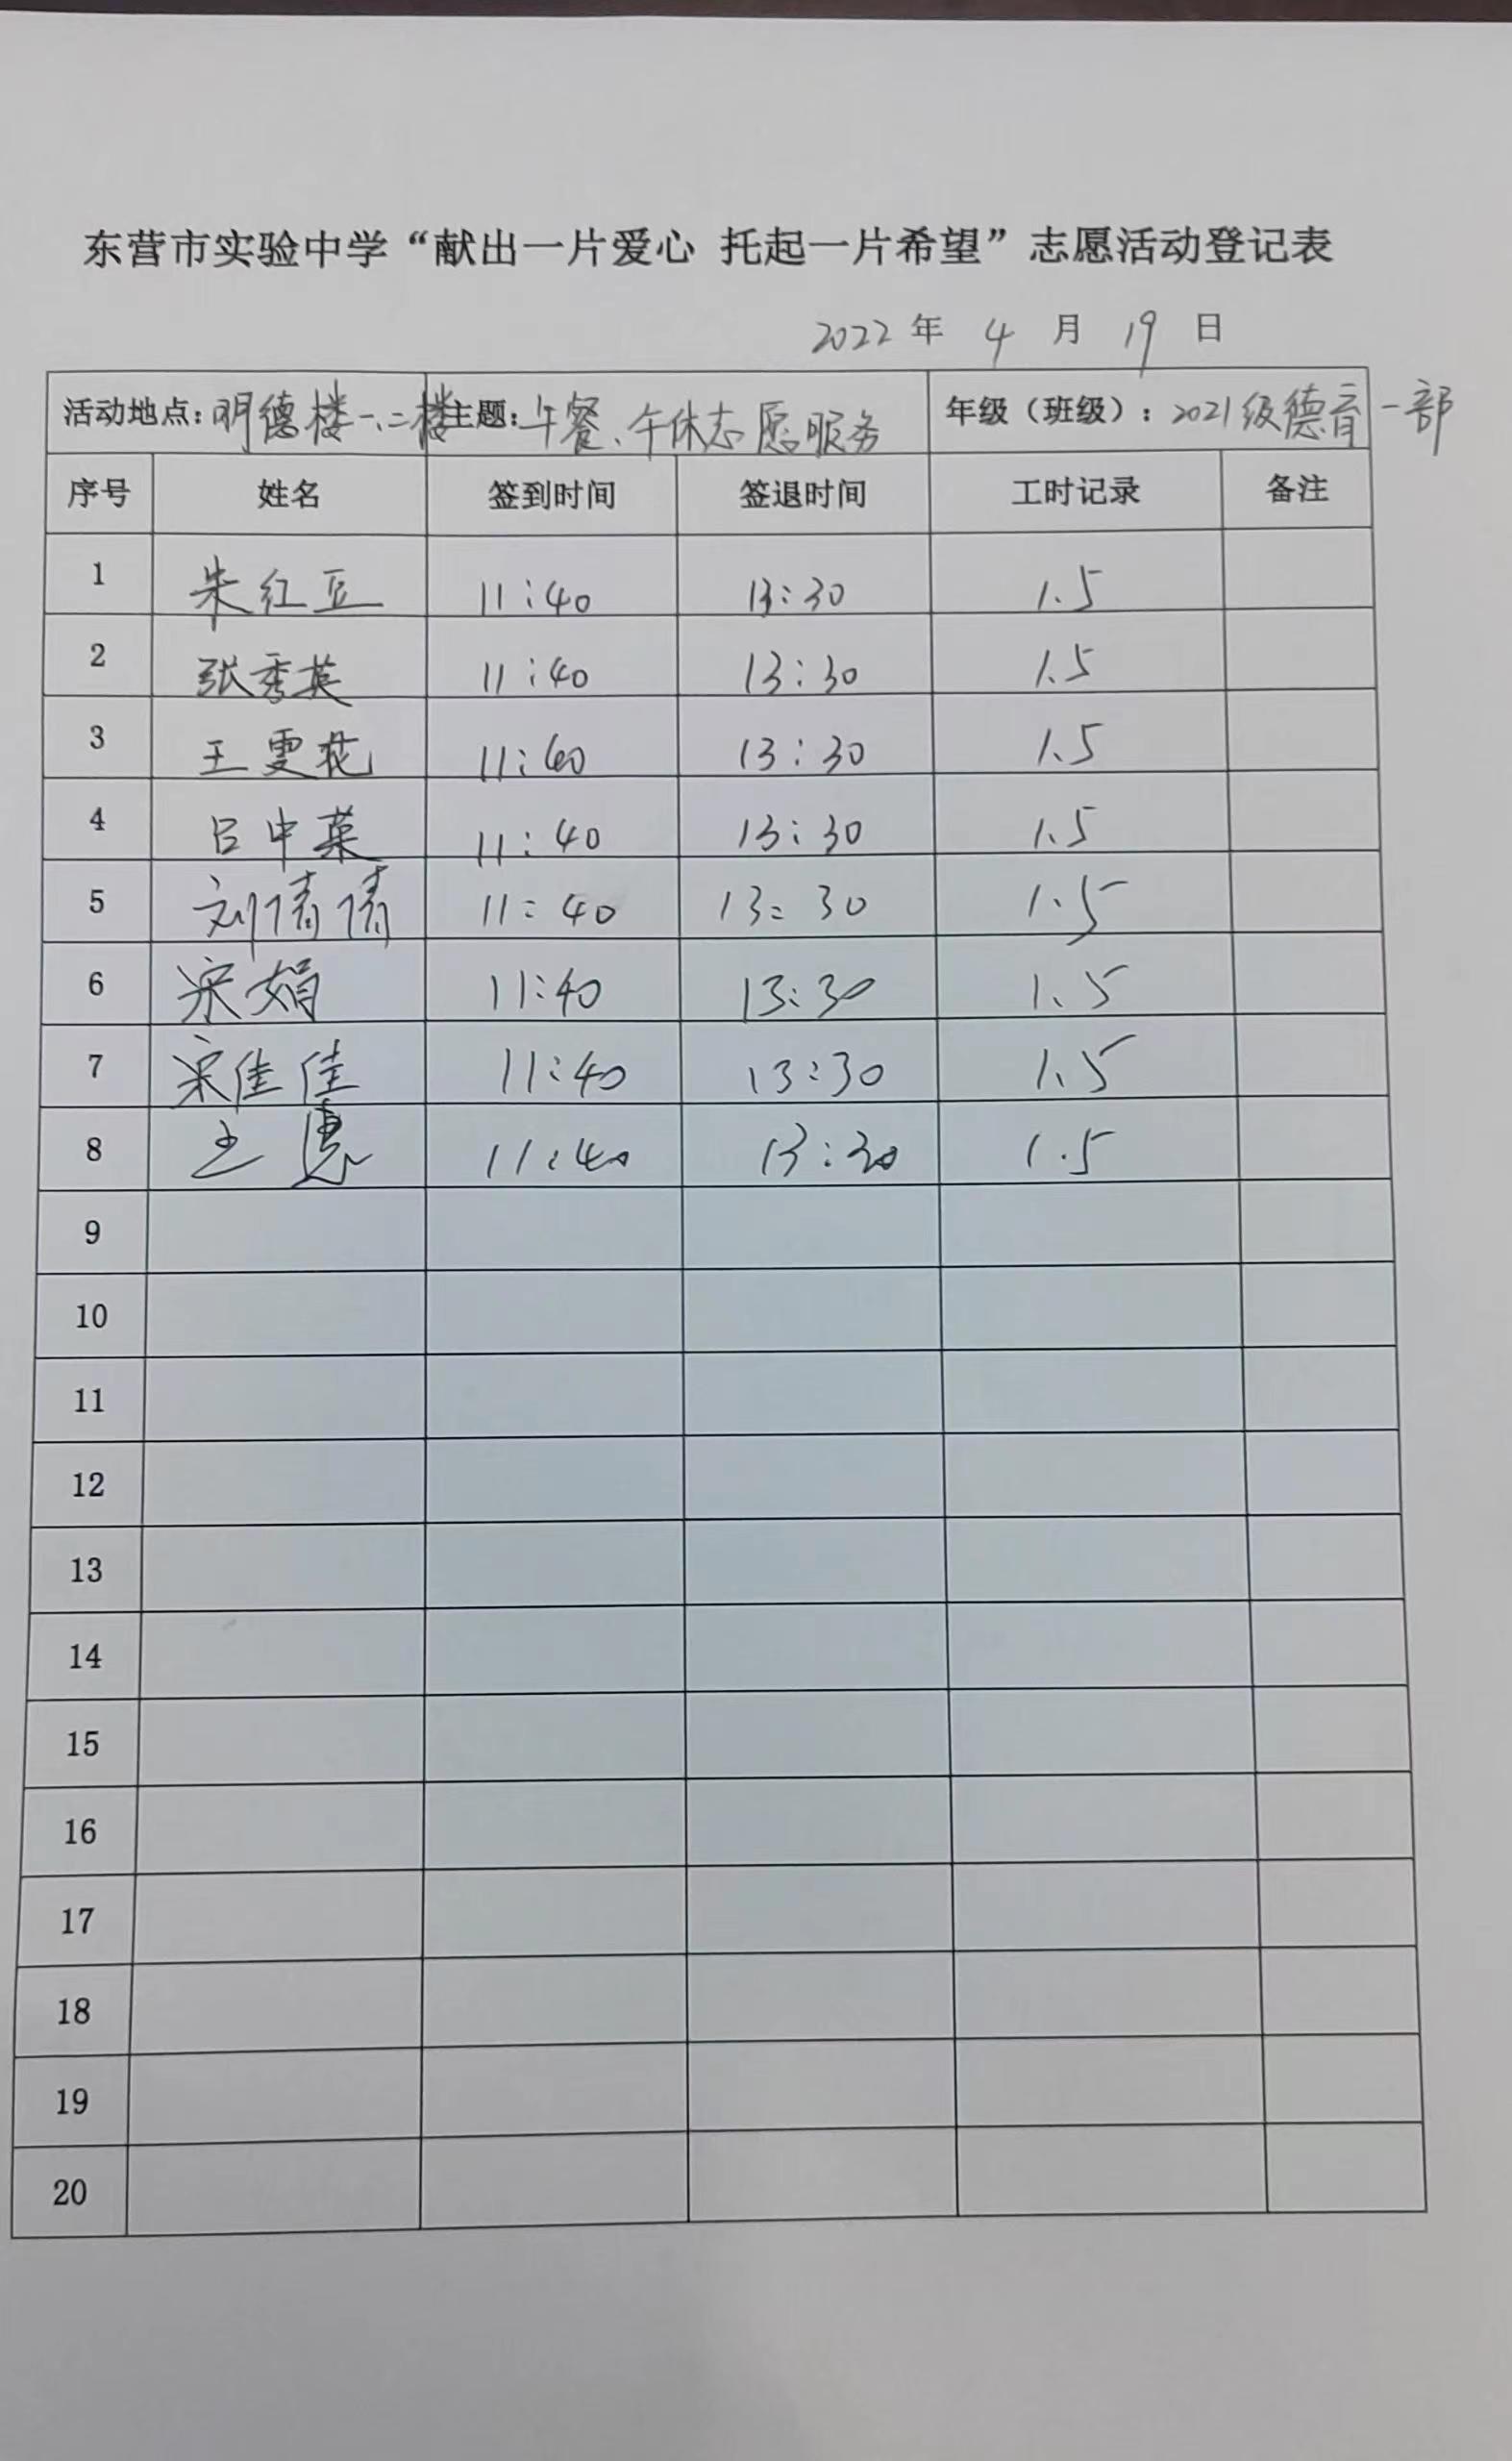 东营市实验中学“献出一片爱心 托起一片希望”志愿活动登记表
2022 年 4 月 19 日
活动地点: 明德楼一、二楼 主题: 午餐、午休志愿服务 年级（班级）: 2021级德育一部
序号 姓名 签到时间 签退时间 工时记录 备注
1 朱红豆 11:40 13:30 1.5
2 张秀英 11:40 13:30 1.5
3 王雯花 11:40 13:30 1.5
4 吕中菜 11:40 13:30 1.5
5 刘倩倩 11:40 13:30 1.5
6 宋娟 11:40 13:30 1.5
7 宋佳佳 11:40 13:30 1.5
8 王惠 11:40 13:30 1.5
9
10
11
12
13
14
15
16
17
18
19
20